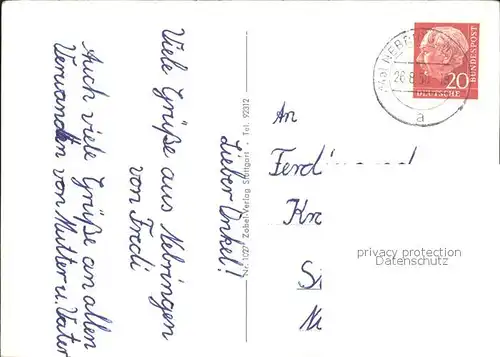 Lieber Onkel!
Viele Grüße aus Nebringen
von Fredi
Auch viele Grüße an allen
Verwandten von Mutter u. Vater
Nr. 1027 Zobel-Verlag Stuttgart - Tel. 92312
An
Ferd
Kr
Si
N
20
DEUTSCHE
BUNDESPOST
a
privacy protection
Datenschutz